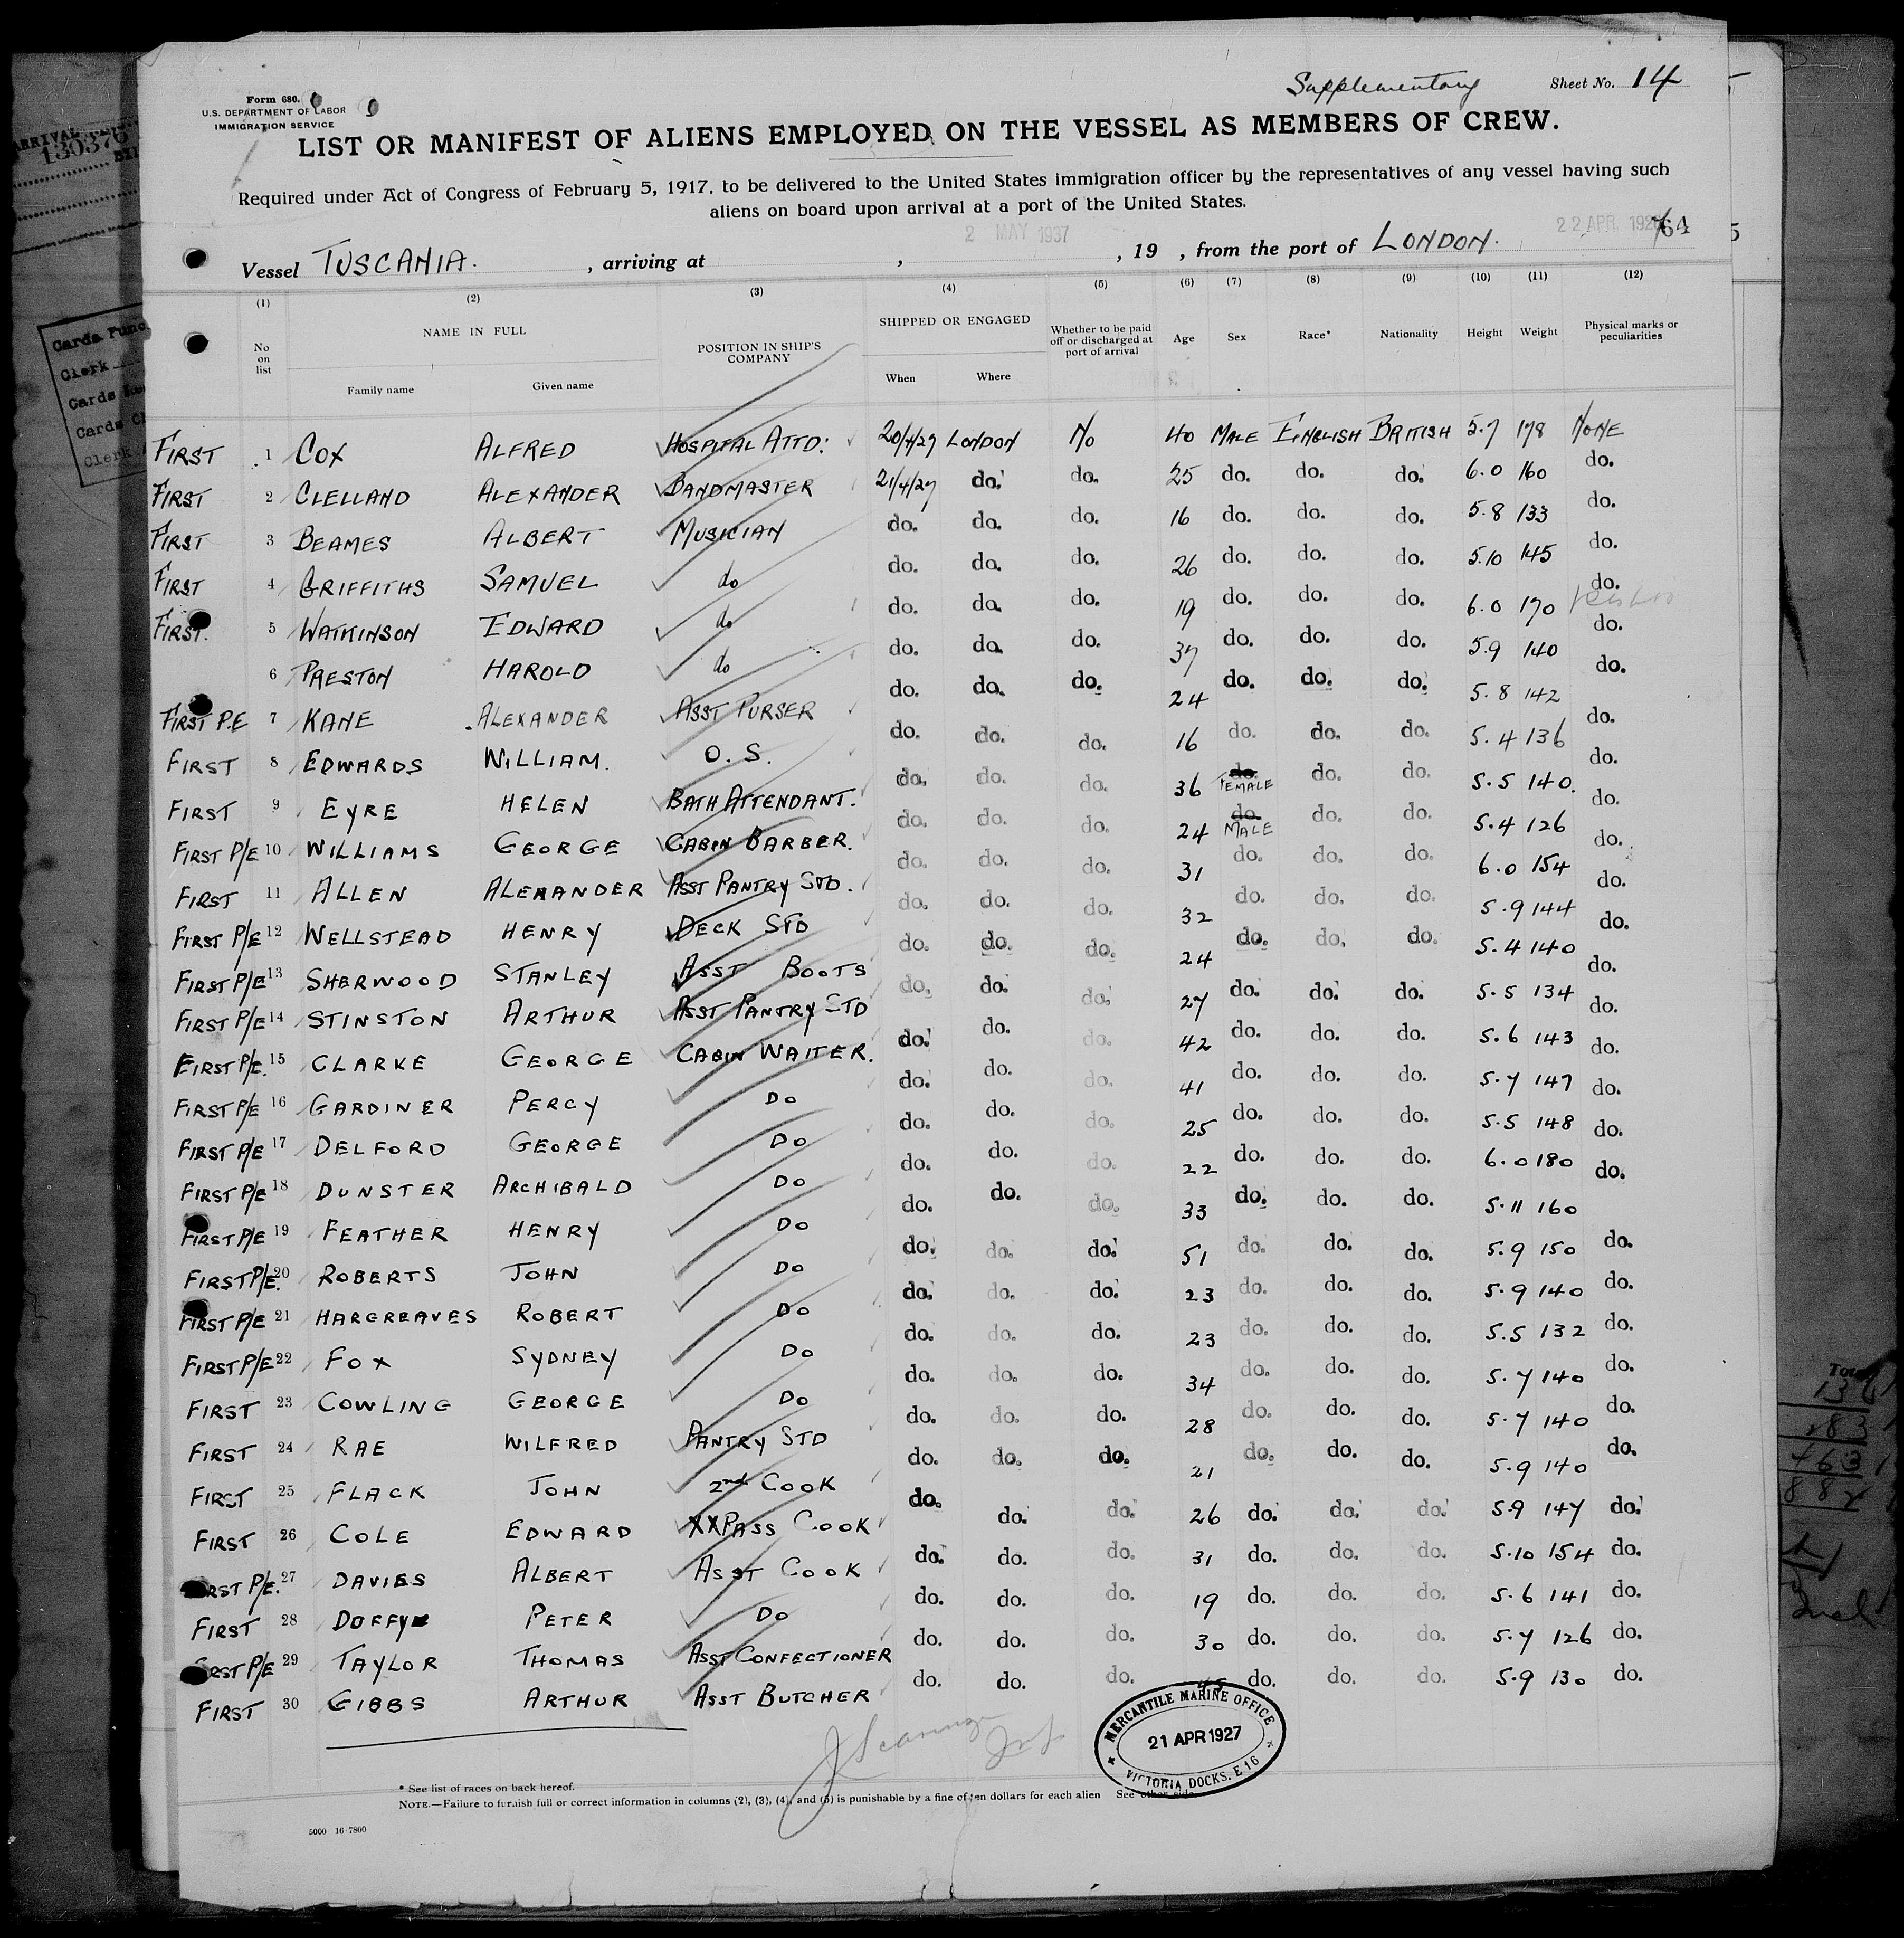 Supplementary
Sheet No. 14
Form 680.
U.S. DEPARTMENT OF LABOR
IMMIGRATION SERVICE
LIST OR MANIFEST OF ALIENS EMPLOYED ON THE VESSEL AS MEMBERS OF CREW.
Required under Act of Congress of February 5, 1917, to be delivered to the United States immigration officer by the representatives of any vessel having such
aliens on board upon arrival at a port of the United States.
2 MAY 1937
22 APR 192 64 5
Vessel TUSCANIA. , arriving at , , 19 , from the port of LONDON.
(1) (2) (3) (4) (5) (6) (7) (8) (9) (10) (11) (12)
No on list NAME IN FULL Family name Given name POSITION IN SHIP'S COMPANY SHIPPED OR ENGAGED When Where Whether to be paid off or discharged at port of arrival Age Sex Race* Nationality Height Weight Physical marks or peculiarities
FIRST 1 COX ALFRED HOSPITAL ATTD: 20/4/27 LONDON No 40 MALE ENGLISH BRITISH 5.7 178 NONE
FIRST 2 CLELLAND ALEXANDER BANDMASTER 21/4/27 do. do. 25 do. do. do. 6.0 160 do.
FIRST 3 BEAMES ALBERT MUSICIAN do. do. do. 16 do. do. do. 5.8 133 do.
FIRST 4 GRIFFITHS SAMUEL do do. do. do. 26 do. do. do. 5.10 145 do.
FIRST. 5 WATKINSON EDWARD do do. do. do. 19 do. do. do. 6.0 170 do.
6 PRESTON HAROLD do do. do. do. 37 do. do. do. 5.9 140 do.
FIRST P.E 7 KANE ALEXANDER ASST PURSER do. do. do. 24 do. do. do. 5.8 142 do.
FIRST 8 EDWARDS WILLIAM. O.S. do. do. do. 16 do. do. do. 5.4 136 do.
FIRST 9 EYRE HELEN BATH ATTENDANT. do. do. do. 36 do. FEMALE do. do. 5.5 140. do.
FIRST P/E 10 WILLIAMS GEORGE CABIN BARBER. do. do. do. 24 do. MALE do. do. 5.4 126 do.
FIRST 11 ALLEN ALEXANDER ASST PANTRY STD. do. do. do. 31 do. do. do. 6.0 154 do.
FIRST P/E 12 WELLSTEAD HENRY DECK STD do. do. do. 32 do. do. do. 5.9 144 do.
FIRST P/E 13 SHERWOOD STANLEY ASST BOOTS do. do. do. 24 do. do. do. 5.4 140 do.
FIRST P/E 14 STINSTON ARTHUR ASST PANTRY STD do. do. do. 27 do. do. do. 5.5 134 do.
FIRST P/E. 15 CLARKE GEORGE CABIN WAITER. do. do. do. 42 do. do. do. 5.6 143 do.
FIRST P/E 16 GARDINER PERCY DO do. do. do. 41 do. do. do. 5.7 147 do.
FIRST P/E 17 DELFORD GEORGE DO do. do. do. 25 do. do. do. 5.5 148 do.
FIRST P/E 18 DUNSTER ARCHIBALD DO do. do. do. 22 do. do. do. 6.0 180 do.
FIRST P/E 19 FEATHER HENRY DO do. do. do. 33 do. do. do. 5.11 160
FIRST P/E. 20 ROBERTS JOHN DO do. do. do. 51 do. do. do. 5.9 150 do.
FIRST P/E 21 HARGREAVES ROBERT DO do. do. do. 23 do. do. do. 5.9 140 do.
FIRST P/E 22 FOX SYDNEY DO do. do. do. 23 do. do. do. 5.5 132 do.
FIRST 23 COWLING GEORGE DO do. do. do. 34 do. do. do. 5.7 140 do.
FIRST 24 RAE WILFRED PANTRY STD do. do. do. 28 do. do. do. 5.7 140 do.
FIRST 25 FLACK JOHN 2nd COOK do. do. do. 21 do. do. do. 5.9 140 do.
FIRST 26 COLE EDWARD XXPASS COOK do. do. do. 26 do. do. do. 5.9 147 do.
FIRST P/E. 27 DAVIES ALBERT ASST COOK do. do. do. 31 do. do. do. 5.10 154 do.
FIRST 28 DOFFY PETER DO do. do. do. 19 do. do. do. 5.6 141 do.
FIRST P/E 29 TAYLOR THOMAS ASST CONFECTIONER do. do. do. 30 do. do. do. 5.7 126 do.
FIRST 30 GIBBS ARTHUR ASST BUTCHER do. do. do. 45 do. do. do. 5.9 130 do.
MERCANTILE MARINE OFFICE
21 APR 1927
VICTORIA DOCKS, E 16
* See list of races on back hereof.
NOTE.—Failure to furnish full or correct information in columns (2), (3), (4), and (5) is punishable by a fine of ten dollars for each alien See other side
5000 16-7800
ARRIVAL
130376
Cards Punc
Clerk
Cards
Cards
Clerk